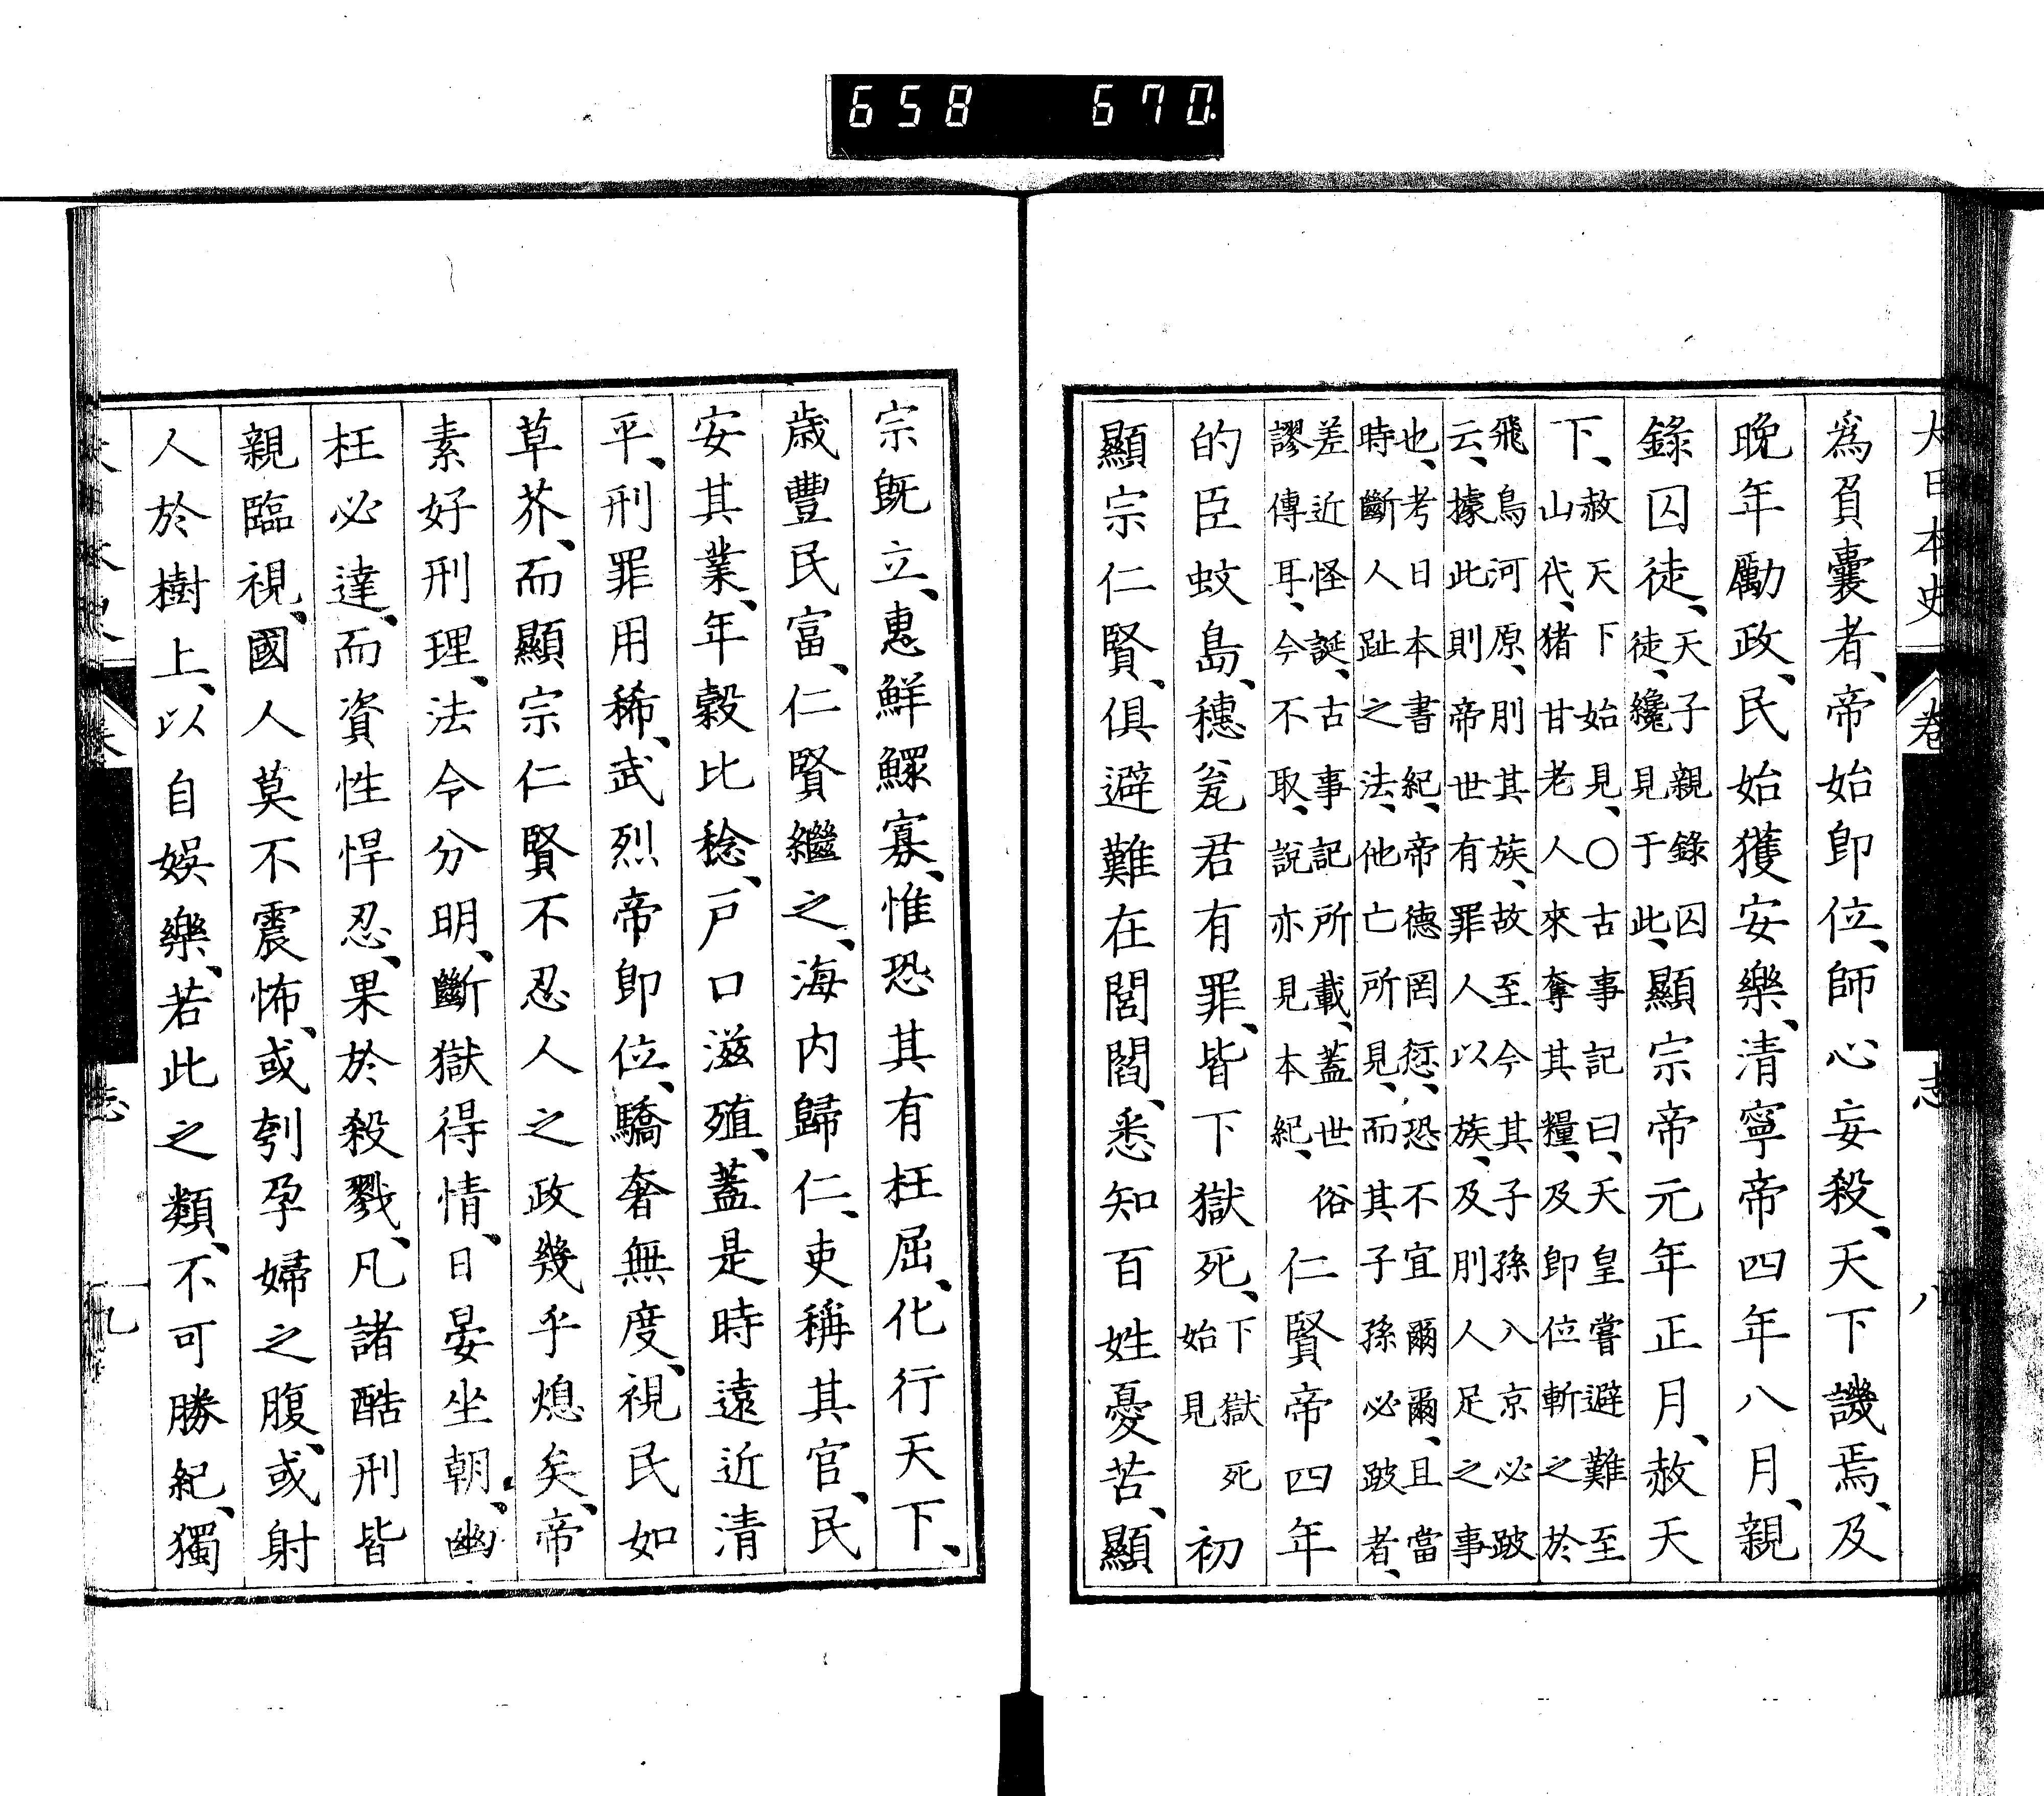 658 670
大日本史 卷 志 八
爲負囊者、帝始卽位、師心妄殺、天下譏焉、及
晩年勵政、民始獲安樂、淸寧帝四年八月、親
錄囚徒、天子親錄囚徒、纔見于此、顯宗帝元年正月、赦天
下、赦天下始見、○古事記曰、天皇嘗避難至山代、猪甘老人來奪其糧、及卽位斬之於
飛鳥河原、刖其族、故至今其子孫入京必跛云、據此則帝世有罪人以族、及刖人足之事
也、考日本書紀、帝德罔愆、恐不宜爾爾、且當時斷人趾之法、他亡所見、而其子孫必跛者、
差近怪誕、古事記所載、蓋世俗謬傳耳、今不取、說亦見本紀、仁賢帝四年
的臣蚊島、穗瓮君有罪、皆下獄死、下獄死始見初
顯宗仁賢、俱避難在閭閻、悉知百姓憂苦、顯
宗旣立、惠鮮鰥寡、惟恐其有枉屈、化行天下、
歲豐民富、仁賢繼之、海內歸仁、吏稱其官、民
安其業、年穀比稔、戶口滋殖、蓋是時遠近淸
平、刑罪用稀、武烈帝卽位、驕奢無度、視民如
草芥、而顯宗仁賢不忍人之政幾乎熄矣、帝
素好刑理、法令分明、斷獄得情、日晏坐朝、幽
枉必達、而資性悍忍、果於殺戮、凡諸酷刑皆
親臨視、國人莫不震怖、或刳孕婦之腹、或射
人於樹上、以自娛樂、若此之類、不可勝紀、獨
志 九